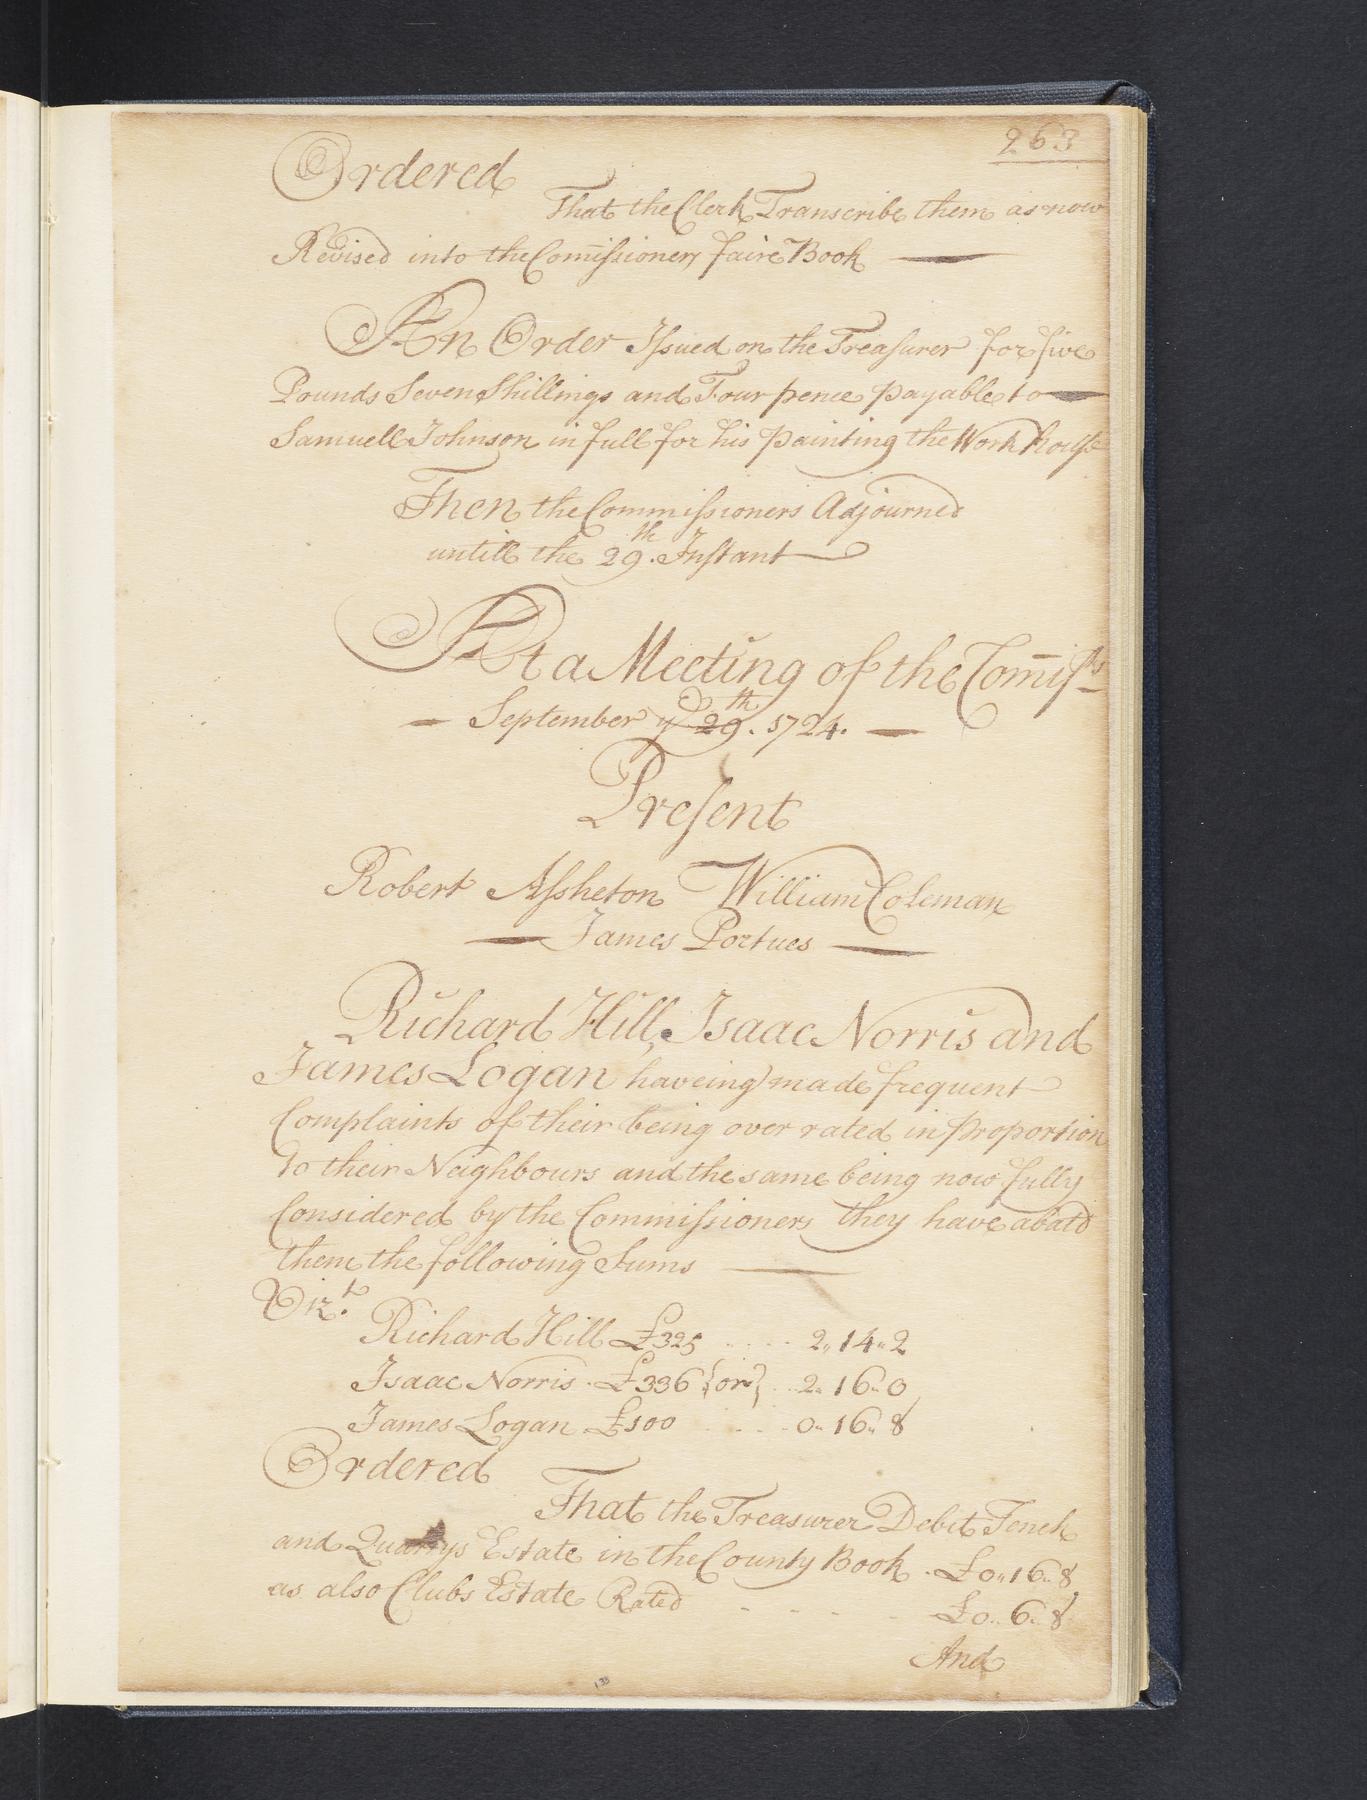 263
Ordered
That the Clerk Transcribe them as now
Revised into the Com̄issioners faire Book
An Order Issued on the Treasurer for five
Pounds Seven Shillings and Four pence payable to
Samuell Johnson in full for his painting the Work house
Then the Commissioners Adjourned
untill the 29.th Instant
At a Meeting of the Com̄issrs
September ye 29.th 1724.
Present
Robert Assheton William Coleman
James Portues
Richard Hill, Isaac Norris and
James Logan haveing made frequent
Complaints of their being over rated in proportion
to their Neighbours and the same being now fully
Considered by the Commissioners they have abatd
them the following Sums
Vizt.
Richard Hill £325 .... 2„14„2
Isaac Norris . £336 {or} .. 2„16„0
James Logan £100 .... 0„16„8
Ordered
That the Treasurer Debit Tench
and Quarrys Estate in the County Book . £0„16„8
as also Clubs Estate Rated - - - - £0„6„8
And